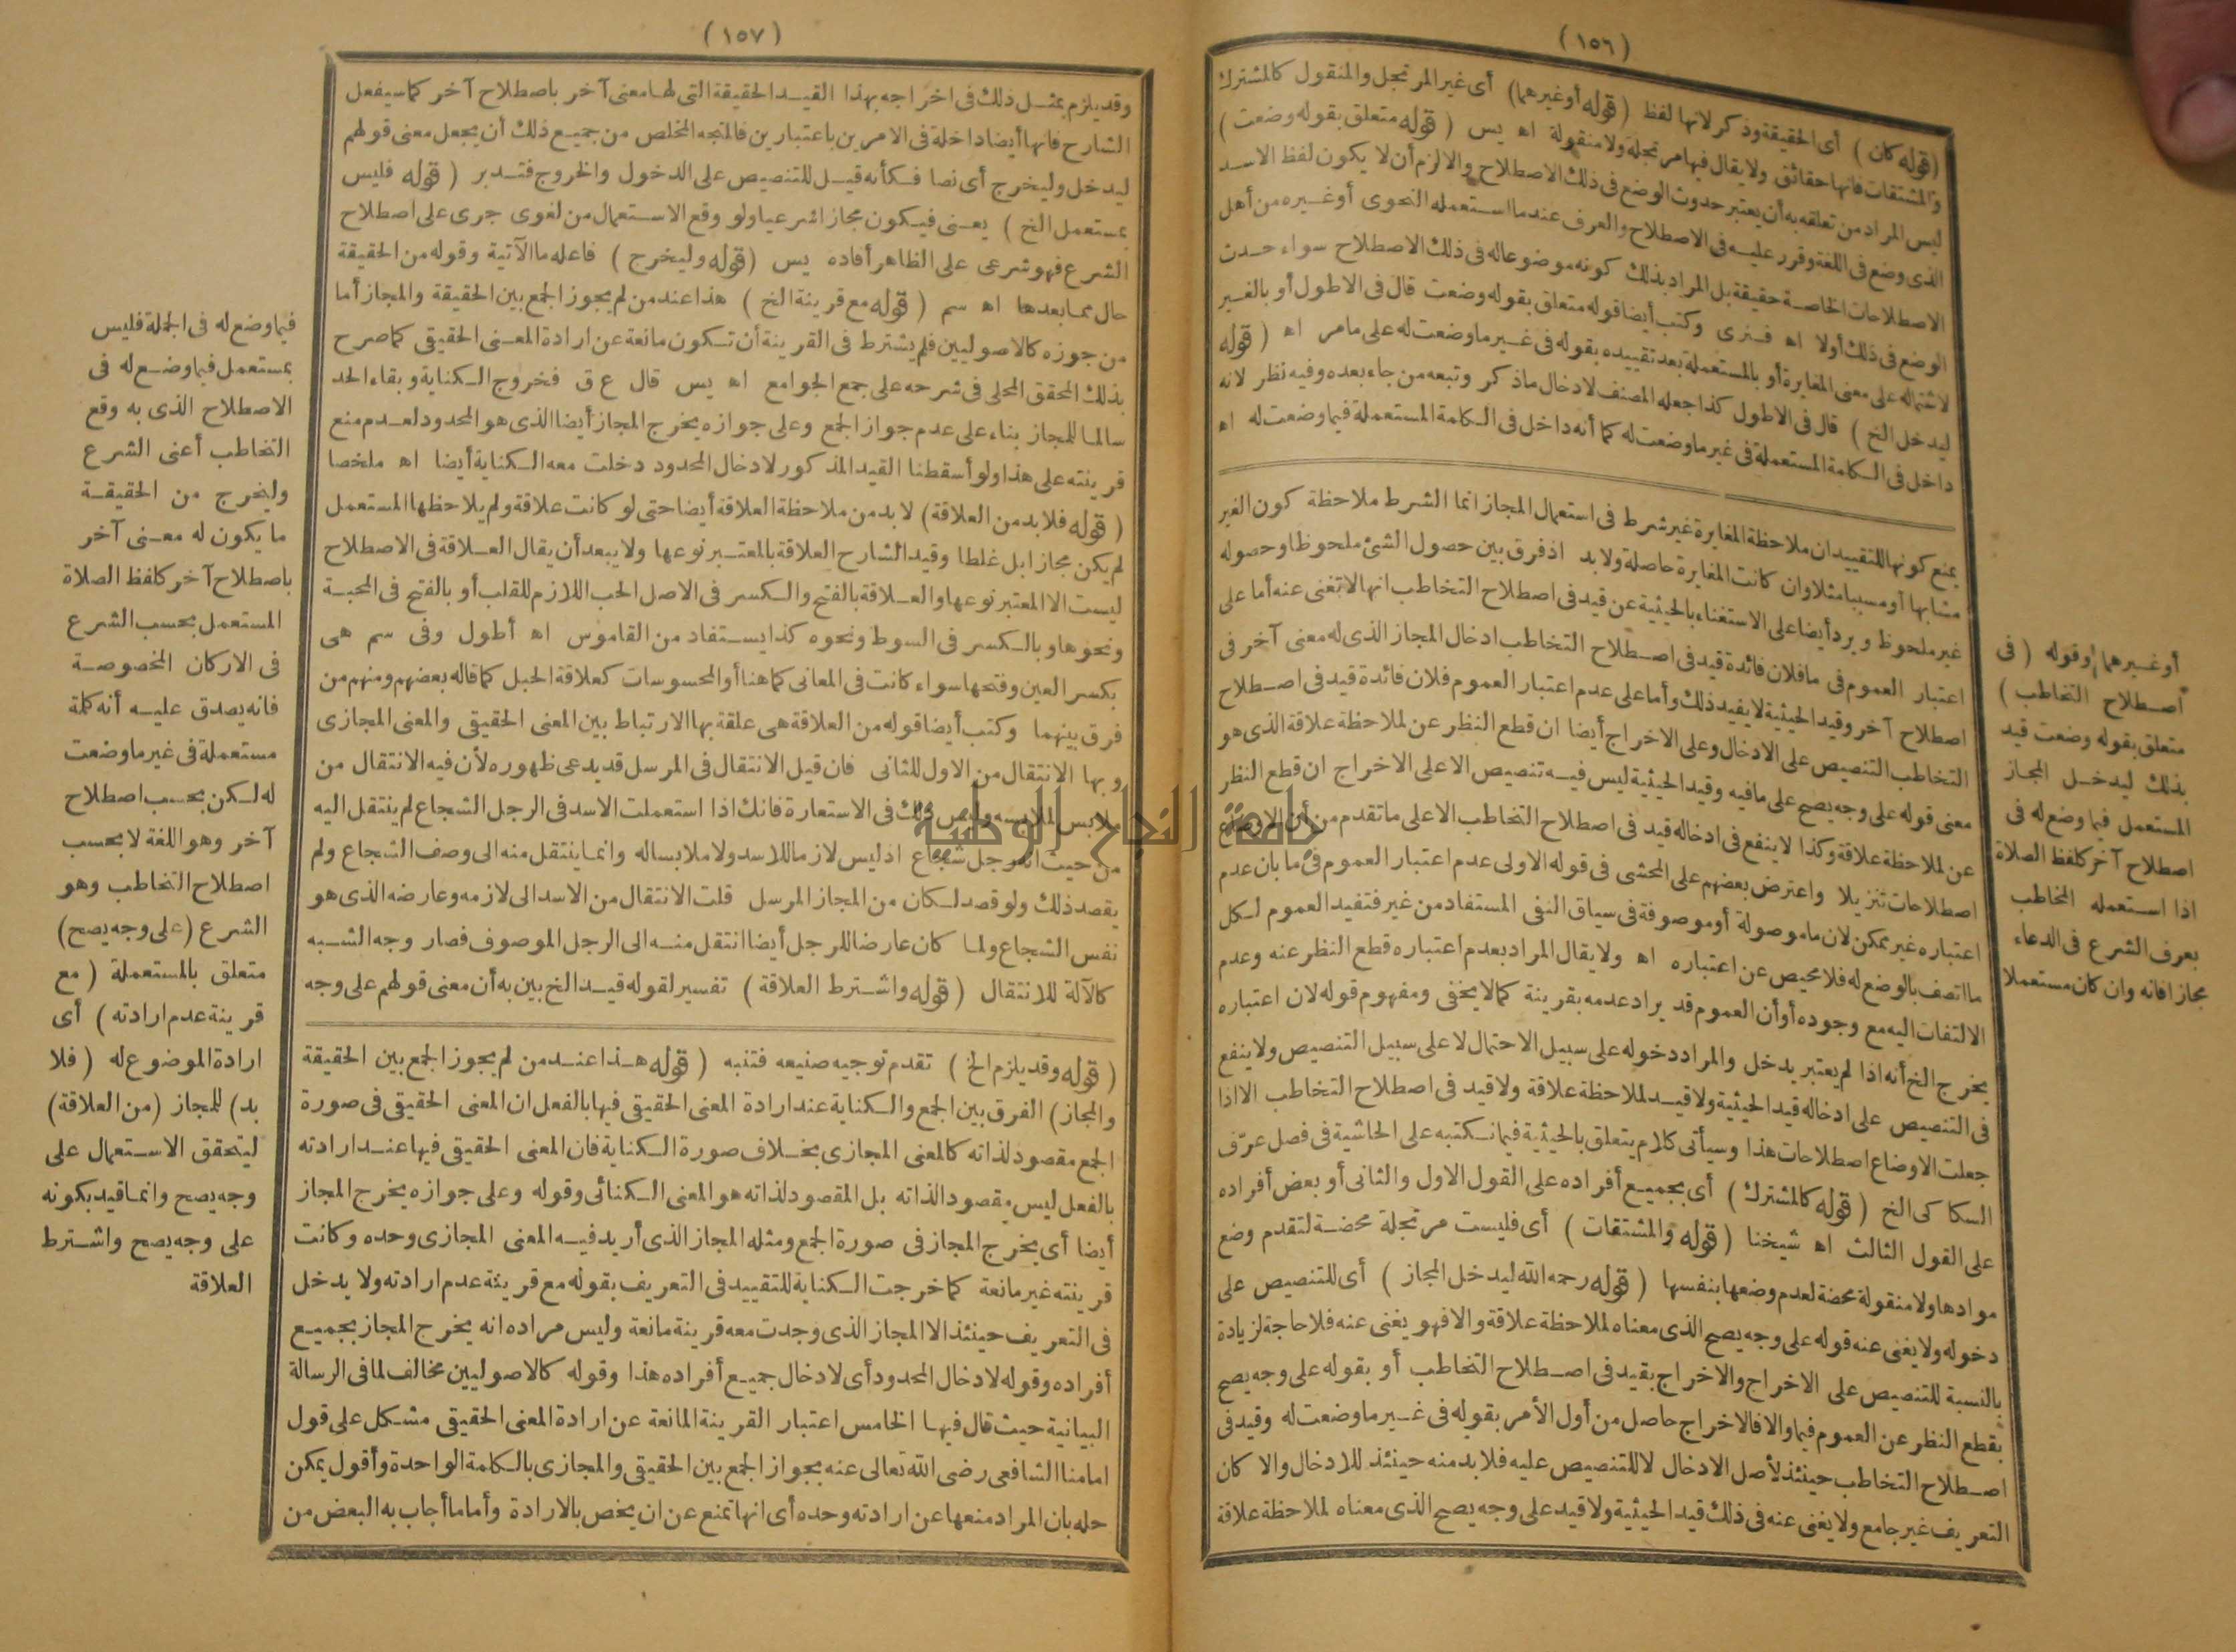 (١٥٦)
(قوله كان) أى الحقيقة وذكر لانها لفظ (قوله أوغيرهما) أى غير المرتجل والمنقول كالمشترك
والمشتقات فانها حقائق ولا يقال فيها مرتجلة ولا منقولة اه يس (قوله متعلق بقوله وضعت)
ليس المراد من تعلقه به أن يعتبر حدوث الوضع فى ذلك الاصطلاح والا لزم أن لا يكون لفظ الاسد
الذى وضع فى اللغة وقرر عليه فى الاصطلاح والعرف عند ما استعمله النحوى أو غيره من أهل
الاصطلاحات الخاصة حقيقة بل المراد بذلك كونه موضوعا له فى ذلك الاصطلاح سواء حدث
الوضع فى ذلك أولا اه فنرى وكتب أيضا قوله متعلق بقوله وضعت قال فى الاطول أو بالغير
لاشتماله على معنى المغايرة أو بالمستعملة بعد تقييده بقوله فى غير ما وضعت له على مامر اه (قوله
ليدخل الخ) قال فى الاطول كذا جعله المصنف لادخال ماذكر وتبعه من جاء بعده وفيه نظر لانه
داخل فى الكلمة المستعملة فى غير ما وضعت له كما أنه داخل فى الكلمة المستعملة فيما وضعت له اه
يمنع كونها للتقييد ان ملاحظة المغايرة غير شرط فى استعمال المجاز انما الشرط ملاحظة كون الغير
مشابها أو مسببا مثلا وان كانت المغايرة حاصلة ولا بد اذ فرق بين حصول الشئ ملحوظا وحصوله
غير ملحوظ ويرد أيضا على الاستغناء بالحيثية عن قيد فى اصطلاح التخاطب انها لا تغنى عنه أما على
اعتبار العموم فى ما فلان فائدة قيد فى اصطلاح التخاطب ادخال المجاز الذى له معنى آخر فى
اصطلاح آخر وقيد الحيثية لا يفيد ذلك وأما على عدم اعتبار العموم فلان فائدة قيد فى اصطلاح
التخاطب التنصيص على الادخال وعلى الاخراج أيضا ان قطع النظر عن لملاحظة علاقة الذى هو
معنى قوله على وجه يصح على مافيه وقيد الحيثية ليس فيه تنصيص الا على الاخراج ان قطع النظر
عن لملاحظة علاقة وكذا لا ينفع فى ادخاله قيد فى اصطلاح التخاطب الا على ما تقدم من أن الاوضاع
اصطلاحات تنزيلا واعترض بعضهم على المحشى فى قوله الاولى عدم اعتبار العموم فى ما بان عدم
اعتباره غير ممكن لان ما موصولة أو موصوفة فى سياق النفى المستفاد من غير فتفيد العموم لكل
ما اتصف بالوضع له فلا محيص عن اعتباره اه ولا يقال المراد بعدم اعتباره قطع النظر عنه وعدم
الالتفات اليه مع وجوده أو أن العموم قد يراد عدمه بقرينة كما لا يخفى ومفهوم قوله لان اعتباره
يخرج الخ أنه اذا لم يعتبر يدخل والمراد دخوله على سبيل الاحتمال لا على سبيل التنصيص ولا ينفع
فى التنصيص على ادخاله قيد الحيثية ولا قيد لملاحظة علاقة ولا قيد فى اصطلاح التخاطب الا اذا
جعلت الاوضاع اصطلاحات هذا وسيأتى كلام يتعلق بالحيثية فيما نكتبه على الحاشية فى فصل عرّف
السكاكى الخ (قوله كالمشترك) أى بجميع أفراده على القول الاول والثانى أو بعض أفراده
على القول الثالث اه شيخنا (قوله والمشتقات) أى فليست مرتجلة محضة لتقدم وضع
موادها ولا منقولة محضة لعدم وضعها بنفسها (قوله رحمه الله ليدخل المجاز) أى للتنصيص على
دخوله ولا يغنى عنه قوله على وجه يصح الذى معناه لملاحظة علاقة والا فهو يغنى عنه فلا حاجة لزيادة
بالنسبة للتنصيص على الاخراج والاخراج بقيد فى اصطلاح التخاطب أو بقوله على وجه يصح
بقطع النظر عن العموم فيما والا فالاخراج حاصل من أول الأمر بقوله فى غير ما وضعت له وقيد فى
اصطلاح التخاطب حينئذ لأصل الادخال لا للتنصيص عليه فلا بد منه حينئذ للادخال والا كان
التعريف غير جامع ولا يغنى عنه فى ذلك قيد الحيثية ولا قيد على وجه يصح الذى معناه لملاحظة علاقة
أو غيرهما وقوله (فى
اصطلاح التخاطب)
متعلق بقوله وضعت قيد
بذلك ليدخل المجاز
المستعمل فيما وضع له فى
اصطلاح آخر كلفظ الصلاة
اذا استعمله المخاطب
بعرف الشرع فى الدعاء
مجازا فانه وان كان مستعملا
(١٥٧)
وقد يلزم بمثل ذلك فى اخراجه بهذا القيد الحقيقة التى لها معنى آخر باصطلاح آخر كما سيفعل
الشارح فانها أيضا داخلة فى الامرين باعتبارين فالمتجه المخلص من جميع ذلك أن يجعل معنى قولهم
ليدخل وليخرج أى نصا فكأنه قيل للتنصيص على الدخول والخروج فتدبر (قوله فليس
بمستعمل الخ) يعنى فيكون مجازا شرعيا ولو وقع الاستعمال من لغوى جرى على اصطلاح
الشرع فهو شرعى على الظاهر أفاده يس (قوله وليخرج) فاعله ما الآتية وقوله من الحقيقة
حال مما بعدها اه سم (قوله مع قرينة الخ) هذا عند من لم يجوز الجمع بين الحقيقة والمجاز أما
من جوزه كالاصوليين فلم يشترط فى القرينة أن تكون مانعة عن ارادة المعنى الحقيقى كما صرح
بذلك المحقق المحلى فى شرحه على جمع الجوامع اه يس قال ع ق فخروج الكناية وبقاء الحد
سالما للمجاز بناء على عدم جواز الجمع وعلى جوازه يخرج المجاز أيضا الذى هو المحدود لعدم منع
قرينته على هذا ولو أسقطنا القيد المذكور لادخال المحدود دخلت معه الكناية أيضا اه ملخصا
(قوله فلا بد من العلاقة) لا بد من ملاحظة العلاقة أيضا حتى لو كانت علاقة ولم يلاحظها المستعمل
لم يكن مجازا بل غلطا وقيد الشارح العلاقة بالمعتبر نوعها ولا يبعد أن يقال العلاقة فى الاصطلاح
ليست الا المعتبر نوعها والعلاقة بالفتح والكسر فى الاصل الحب اللازم للقلب أو بالفتح فى المحبة
ونحوها وبالكسر فى السوط ونحوه كذا يستفاد من القاموس اه أطول وفى سم هى
بكسر العين وفتحها سواء كانت فى المعانى كما هنا أو المحسوسات كعلاقة الحبل كما قاله بعضهم ومنهم من
فرق بينهما وكتب أيضا قوله من العلاقة هى علقة بها الارتباط بين المعنى الحقيقى والمعنى المجازى
وبها الانتقال من الاول للثانى فان قيل الانتقال فى المرسل قد يدعى ظهوره لأن فيه الانتقال من
ملابس لملابسه وليس ذلك فى الاستعارة فانك اذا استعملت الاسد فى الرجل الشجاع لم ينتقل اليه
من حيث انه رجل شجاع اذ ليس لازما للاسد ولا ملابسا له وانما ينتقل منه الى وصف الشجاع ولم
يقصد ذلك ولو قصد لكان من المجاز المرسل قلت الانتقال من الاسد الى لازمه وعارضه الذى هو
نفس الشجاع ولما كان عارضا للرجل أيضا انتقل منه الى الرجل الموصوف فصار وجه الشبه
كالآلة للانتقال (قوله واشترط العلاقة) تفسير لقوله قيد الخ بين به أن معنى قولهم على وجه
(قوله وقد يلزم الخ) تقدم توجيه صنيعه فتنبه (قوله هذا عند من لم يجوز الجمع بين الحقيقة
والمجاز) الفرق بين الجمع والكناية عند ارادة المعنى الحقيقى فيها بالفعل ان المعنى الحقيقى فى صورة
الجمع مقصود لذاته كالمعنى المجازى بخلاف صورة الكناية فان المعنى الحقيقى فيها عند ارادته
بالفعل ليس مقصود الذاته بل المقصود لذاته هو المعنى الكنائى وقوله وعلى جوازه يخرج المجاز
أيضا أى يخرج المجاز فى صورة الجمع ومثله المجاز الذى أريد فيه المعنى المجازى وحده وكانت
قرينته غير مانعة كما خرجت الكناية للتقييد فى التعريف بقوله مع قرينة عدم ارادته ولا يدخل
فى التعريف حينئذ الا المجاز الذى وجدت معه قرينة مانعة وليس مراده انه يخرج المجاز بجميع
أفراده وقوله لادخال المحدود أى لادخال جميع أفراده هذا وقوله كالاصوليين مخالف لما فى الرسالة
البيانية حيث قال فيها الخامس اعتبار القرينة المانعة عن ارادة المعنى الحقيقى مشكل على قول
امامنا الشافعى رضى الله تعالى عنه بجواز الجمع بين الحقيقى والمجازى بالكلمة الواحدة وأقول يمكن
حله بان المراد منعها عن ارادته وحده أى انها تمنع عن ان يخص بالارادة وأما ما أجاب به البعض من
فيما وضع له فى الجملة فليس
بمستعمل فيما وضع له فى
الاصطلاح الذى به وقع
التخاطب أعنى الشرع
وليخرج من الحقيقة
ما يكون له معنى آخر
باصطلاح آخر كلفظ الصلاة
المستعمل بحسب الشرع
فى الاركان المخصوصة
فانه يصدق عليه أنه كلمة
مستعملة فى غير ما وضعت
له لكن بحسب اصطلاح
آخر وهو اللغة لا بحسب
اصطلاح التخاطب وهو
الشرع (على وجه يصح)
متعلق بالمستعملة (مع
قرينة عدم ارادته) أى
ارادة الموضوع له (فلا
بد) للمجاز (من العلاقة)
ليتحقق الاستعمال على
وجه يصح وانما قيد بكونه
على وجه يصح واشترط
العلاقة
جامعة النجاح الوطنية